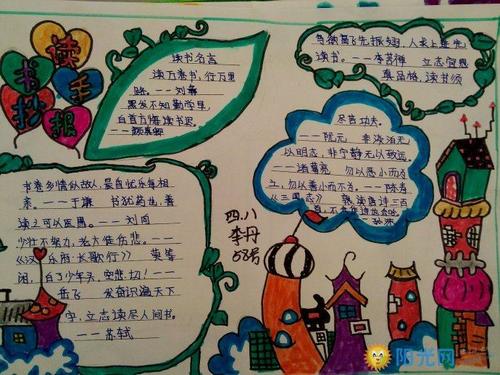 读书手抄报
读书名言
读万卷书,行万里
路。——刘彝
黑发不知勤学早,
白首方悔读书迟。
——颜真卿
鸟欲高飞先振翅,人求上进先
读书。——李苦禅 立志宜思
真品格,读书须
尽苦功夫。
——阮元 非淡泊无
以明志,非宁静无以致远。
——诸葛亮 勿以恶小而为
之,勿以善小而不为。——陈寿
《三国志》 熟读唐诗三百
书卷多情似故人,晨昏忧乐每相
亲。——于谦 书犹药也,善
读之可以医愚。——刘向
少壮不努力,老大徒伤悲。——
《汉乐府·长歌行》 莫等
闲,白了少年头,空悲切!——
岳飞 发奋识遍天下
字,立志读尽人间书。
——苏轼
四.八
李丹
58号
阳光网